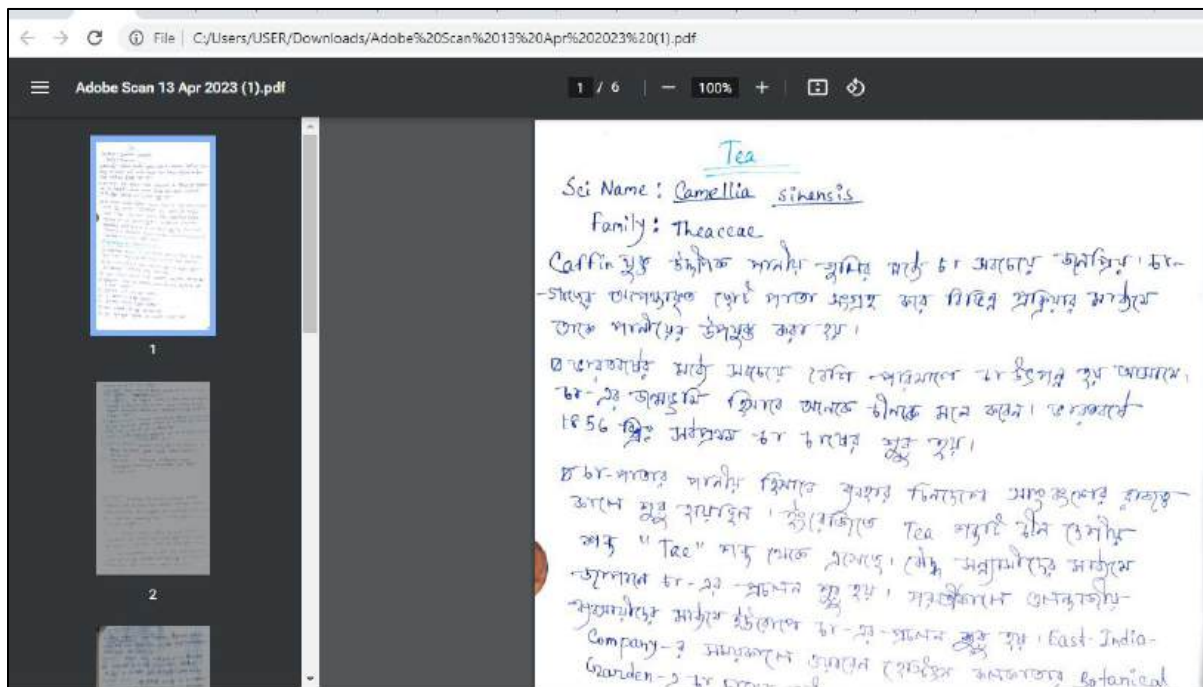 File | C:/Users/USER/Downloads/Adobe%20Scan%2013%20Apr%202023%20(1).pdf
Adobe Scan 13 Apr 2023 (1).pdf
1 / 6
100%
1
2
Tea
Sci Name: Camellia sinensis
Family: Theaceae
Caffin যুক্ত উদ্দীপক পানীয় গুলির মধ্যে চা সবচেয়ে জনপ্রিয়। চা-
গাছের অপেক্ষাকৃত ছোট পাতা সংগ্রহ করে বিভিন্ন প্রক্রিয়ার মাধ্যমে
তাকে পানীয়ের উপযুক্ত করা হয়।
ভারতবর্ষের মধ্যে সবচেয়ে বেশি পরিমাণে চা উৎপন্ন হয় আসামে।
চা-এর জন্মভূমি হিসাবে অনেকে চীনকে মনে করেন। ভারতবর্ষে
1856 খ্রিঃ সর্বপ্রথম চা চাষের শুরু হয়।
চা-পাতার পানীয় হিসাবে ব্যবহার চিনদেশে রাজত্ব
কালে শুরু হয়েছিল। ইংরেজিতে Tea শব্দটি চীন দেশীয়
শব্দ "Tae" শব্দ থেকে এসেছে। বৌদ্ধ সন্ন্যাসীদের মাধ্যমে
জাপানে চা-এর প্রচলন শুরু হয়। পরবর্তীকালে ওলন্দাজীয়
মাধ্যমে ইউরোপে চা-এর প্রচলন শুরু হয়। East-India-
Company-র সময়কালে ওয়ারেন হেস্টিংস কলকাতার Botanical
Garden-এ চা